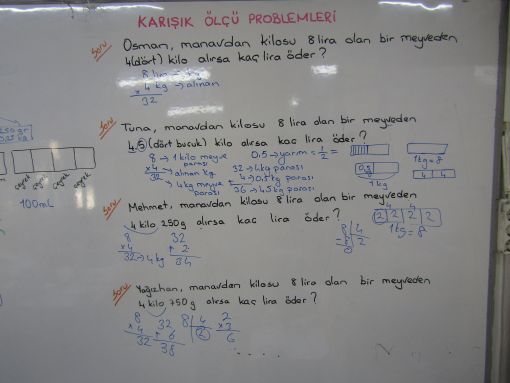 KARIŞIK ÖLÇÜ PROBLEMLERİ
Soru Osman, manavdan kilosu 8 lira olan bir meyveden
4(dört) kilo alırsa kaç lira öder?
x 4 kg → alınan
32
Soru Tuna, manavdan kilosu 8 lira olan bir meyveden
4.5 (dört buçuk) kilo alırsa kac lira öder?
8 → 1 kilo meyve parası
x 4 → alınan kg
32 → 4 kg meyve parası
0,5 → yarım = 1/2
32 → 4 kg parası
+ 4 → 0,5 kg parası
36 → 4.5 kg parası
1 kg = 8
0,5
1 kg
4 4
çeyrek çeyrek çeyrek çeyrek
100mL
Soru Mehmet, manavdan kilosu 8 lira olan bir meyveden
4 kilo 250g alırsa kaç lira öder?
8
x 4
32 → 4 kg
32
+ 2
34
8 4
- 8 2
0
4 4
2 2 2 2
1 kg = 8
Soru Yağızhan, manavdan kilosu 8 lira olan bir meyveden
4 kilo 750g alırsa kaç lira öder?
8
x 4
32
32
+ 6
38
8 4
2
2
x 3
6